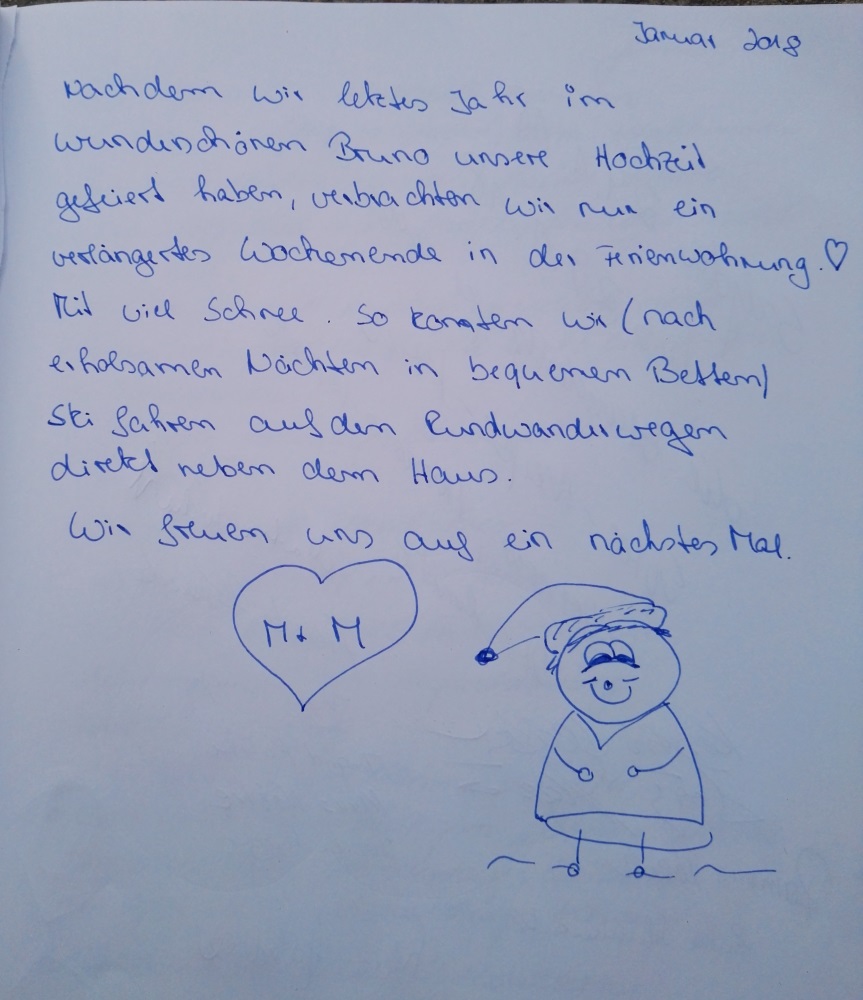 Januar 2018
Nachdem wir letztes Jahr im
wunderschönen Bruno unsere Hochzeit
gefeiert haben, verbrachten wir nun ein
verlängertes Wochenende in der Ferienwohnung. ♡
Mit viel Schnee. So konnten wir (nach
erholsamen Nächten in bequemen Betten)
Ski fahren auf den Rundwanderwegen
direkt neben dem Haus.
Wir freuen uns auf ein nächstes Mal.
M + M